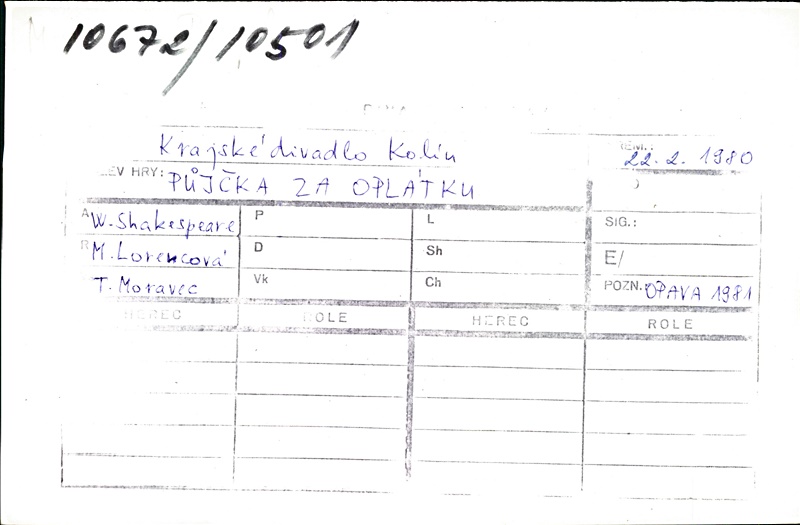 10672/10501
Krajské divadlo Kolín
22. 2. 1980
EV HRY: PŮJČKA ZA OPLÁTKU
A W. Shakespeare P L SIG.:
R M. Lorencová D Sh E/
T. Moravec Vk Ch POZN.: OPAVA 1981
HEREC ROLE HEREC ROLE